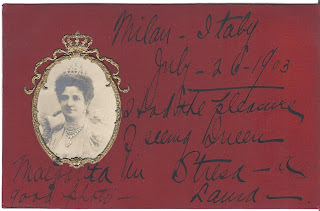 Milan - Italy
July - 26 - 1903
I had the pleasure
of seeing Queen
Margarita in Stresa - a
good photo - Laura -